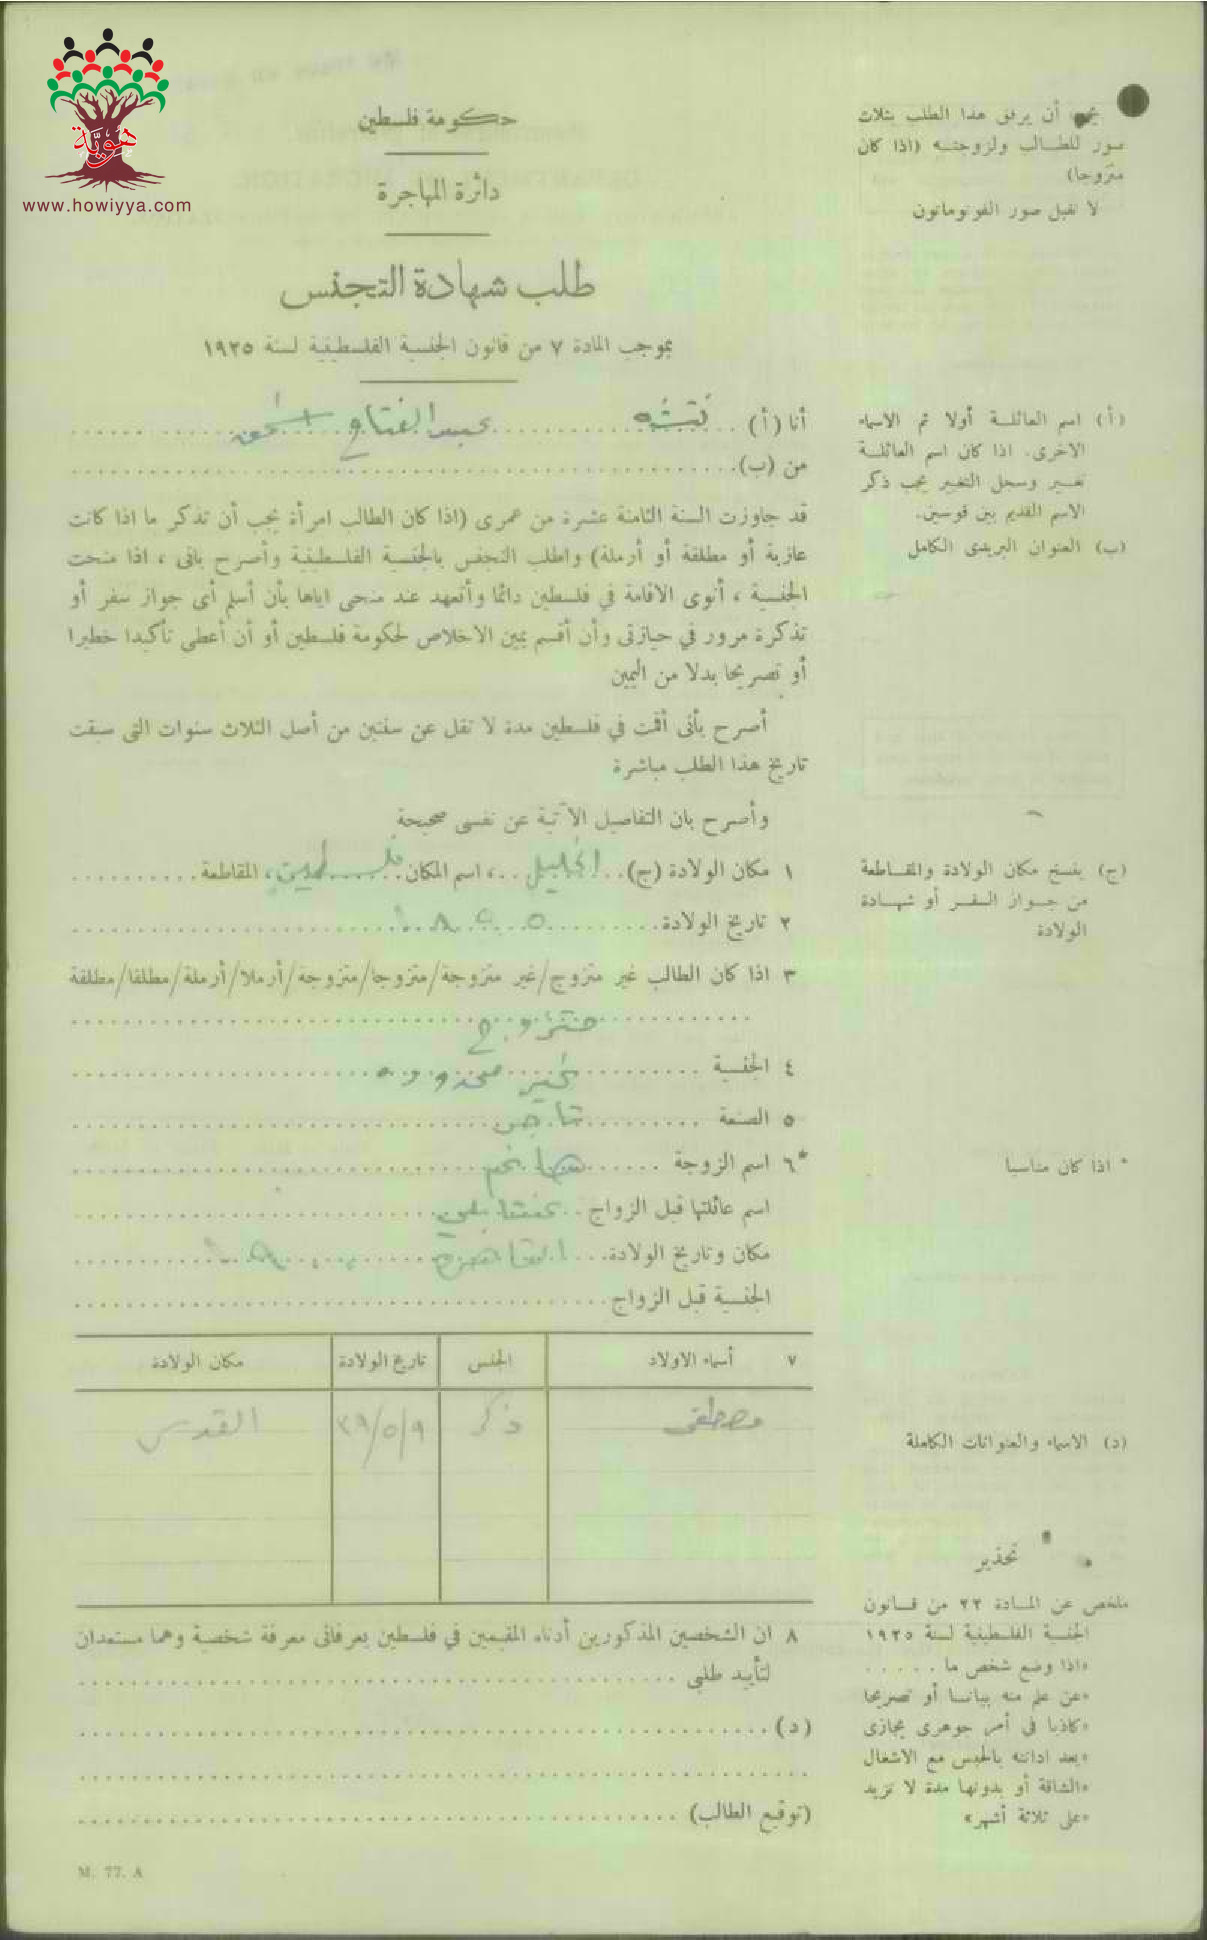 هوية
www.howiyya.com
حكومة فلسطين
دائرة المهاجرة
طلب شهادة التجنس
بموجب المادة ٧ من قانون الجنسية الفلسطينية لسنة ١٩٢٥
يجب أن يرفق هذا الطلب بثلاث
صور للطالب ولزوجته (اذا كان
متزوجا)
لا تقبل صور الفوتوماتون
أنا (أ) نتشه عبد الفتاح اسحق
من (ب)
(أ) اسم العائلة أولا ثم الاسماء
الاخرى. اذا كان اسم العائلة
تغير وسجل التغيير يجب ذكر
الاسم القديم بين قوسين.
(ب) العنوان البريدى الكامل
قد جاوزت السنة الثامنة عشرة من عمرى (اذا كان الطالب امرأة يجب أن تذكر ما اذا كانت
عازبة أو مطلقة أو أرملة) واطلب التجنس بالجنسية الفلسطينية وأصرح بانى ، اذا منحت
الجنسية ، أنوى الاقامة في فلسطين دائما وأتعهد عند منحى اياها بأن أسلم أى جواز سفر أو
تذكرة مرور في حيازتى وأن أقسم يمين الاخلاص لحكومة فلسطين أو أن أعطى تأكيدا خطيرا
أو تصريحا بدلا من اليمين
أصرح بأنى أقمت في فلسطين مدة لا تقل عن سنتين من أصل الثلاث سنوات التى سبقت
تاريخ هذا الطلب مباشرة
وأصرح بان التفاصيل الآتية عن نفسى صحيحة
١ مكان الولادة (ج) الخليل ، اسم المكان فلسطين ، المقاطعة
(ج) ينسخ مكان الولادة والمقاطعة
من جواز السفر أو شهادة
الولادة
٢ تاريخ الولادة
٣ اذا كان الطالب غير متزوج/غير متزوجة/متزوجا/متزوجة/أرملا/أرملة/مطلقا/مطلقة
متزوج
٤ الجنسية غير محدوده
٥ الصنعة تاجر
*٦ اسم الزوجة
* اذا كان مناسبا
اسم عائلتها قبل الزواج
مكان وتاريخ الولادة القاهرة
الجنسية قبل الزواج
٧ أسماء الاولاد الجنس تاريخ الولادة مكان الولادة
مصطفى ذكر ٣٩/٥/٩ القدس
(د) الاسماء والعنوانات الكاملة
تحذير
ملخص عن المادة ٢٢ من قانون
الجنسية الفلسطينية لسنة ١٩٢٥
«اذا وضع شخص ما . . . . .
«عن علم منه بيانا أو تصريحا
«كاذبا في أمر جوهرى يجازى
«بعد ادانته بالحبس مع الاشغال
«الشاقة أو بدونها مدة لا تزيد
«على ثلاثة أشهر»
٨ ان الشخصين المذكورين أدناه المقيمين في فلسطين يعرفانى معرفة شخصية وهما مستعدان
لتأييد طلبى
(د)
(توقيع الطالب)
M. 77. A